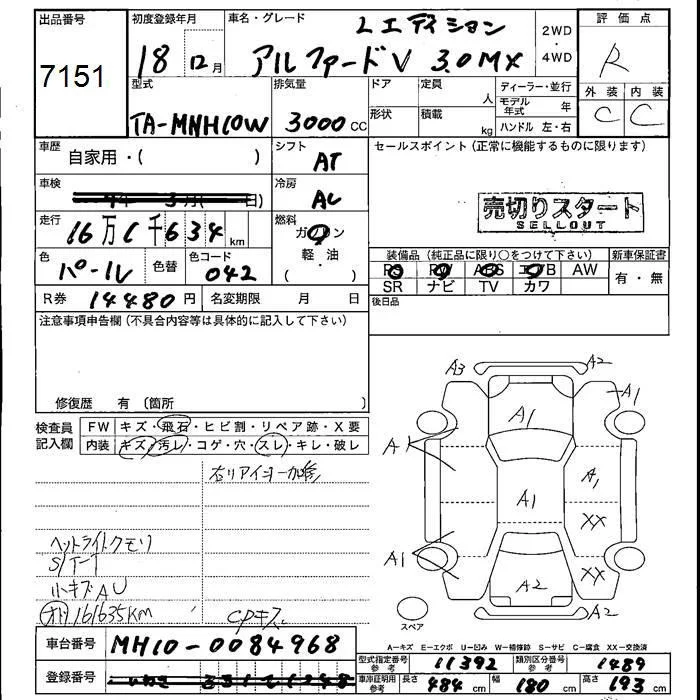 出品番号
7151
初度登録年月
18 12月
車名・グレード
Lエディション
アルファードV 3.0MX
2WD
・
4WD
評価点
R
外装 内装
C C
型式
TA-MNH10W
排気量
3000 CC
ドア
形状
定員
人
積載
kg
ディーラー・並行
モデル年式 年
ハンドル 左・右
車歴
自家用・( )
シフト
AT
セールスポイント(正常に機能するものに限ります)
車検
冷房
AC
売切りスタート
SELLOUT
走行
16万1千634km
燃料
ガソリン
軽・油
( )
色
パール
色替
色コード
042
装備品(純正品に限り○をつけて下さい) 新車保証書
PS PW ABS エアB AW
SR ナビ TV カワ
有・無
R券 14480円 名変期限 月 日
後日品
注意事項申告欄(不具合内容等は具体的に記入して下さい)
修復歴 有 〔箇所 〕
検査員
記入欄
FW キズ・飛石・ヒビ割・リペア跡・X要
内装 キズ・汚レ・コゲ・穴・スレ・キレ・破レ
ヘットライトクモリ
S/T-T
小キズAU
オド 161635KM
CPキズ
A3 A2
A1
A1
A1
A1
A1
XX
A1
XX
A2
A2
スペア
A-キズ E-エクボ U-凹み W-補修跡 S-サビ C-腐食 XX-交換済
車台番号
MH10-0084968
登録番号
型式指定番号
参考
11392
類別区分番号
参考
1489
車庫証明用
参考
長さ 484cm 幅 180cm 高さ 193cm